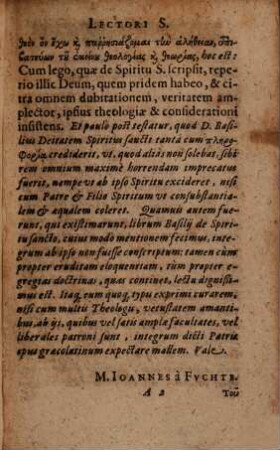 LECTORI S.
θεὸν ὃν ἔχω καὶ παῤῥησιάζομαι τὴν ἀλήθειαν,
τῶν τῆς ἐκείνου θεολογίας καὶ θεωρίας, hoc est:
Cum lego, quæ de Spiritu S. scripsit, repe-
rio illic Deum, quem pridem habeo, & ci-
tra omnem dubitationem, veritatem am-
plector, ipsius theologiæ & considerationi
insistens. Et paulò pòst testatur, quod D. Basi-
lius Deitatem Spiritus sancti tanta cum πληρο-
Φορίᾳ crediderit, vt, quod aliàs non solebat, sibi
rem omnium maximè horrendam imprecatus
fuerit, nempe vt ab ipso Spiritu excideret, nisi
cum Patre & Filio Spiritum vt consubstantia-
lem & æqualem coleret. Quamuis autem fue-
runt, qui existimarunt, librum Basilij de Spiri-
tu sancto, cuius modò mentionem fecimus, inte-
grum ab ipso non fuisse conscriptum: tamen cùm
propter eruditam eloquentiam, tùm propter e-
gregias doctrinas, quas continet, lectu dignissi-
mus est. Itaq; eum quoq; typis exprimi curarem,
nisi cum multis Theologis, vetustatem amanti-
bus, ab ijs, quibus vel satis amplæ facultates, vel
liberales patroni sunt, integrum dicti Patris
opus græcolatinum expectare mallem. Vale.
M. IOANNES à FVCHTE.
A 2 Τοῦ